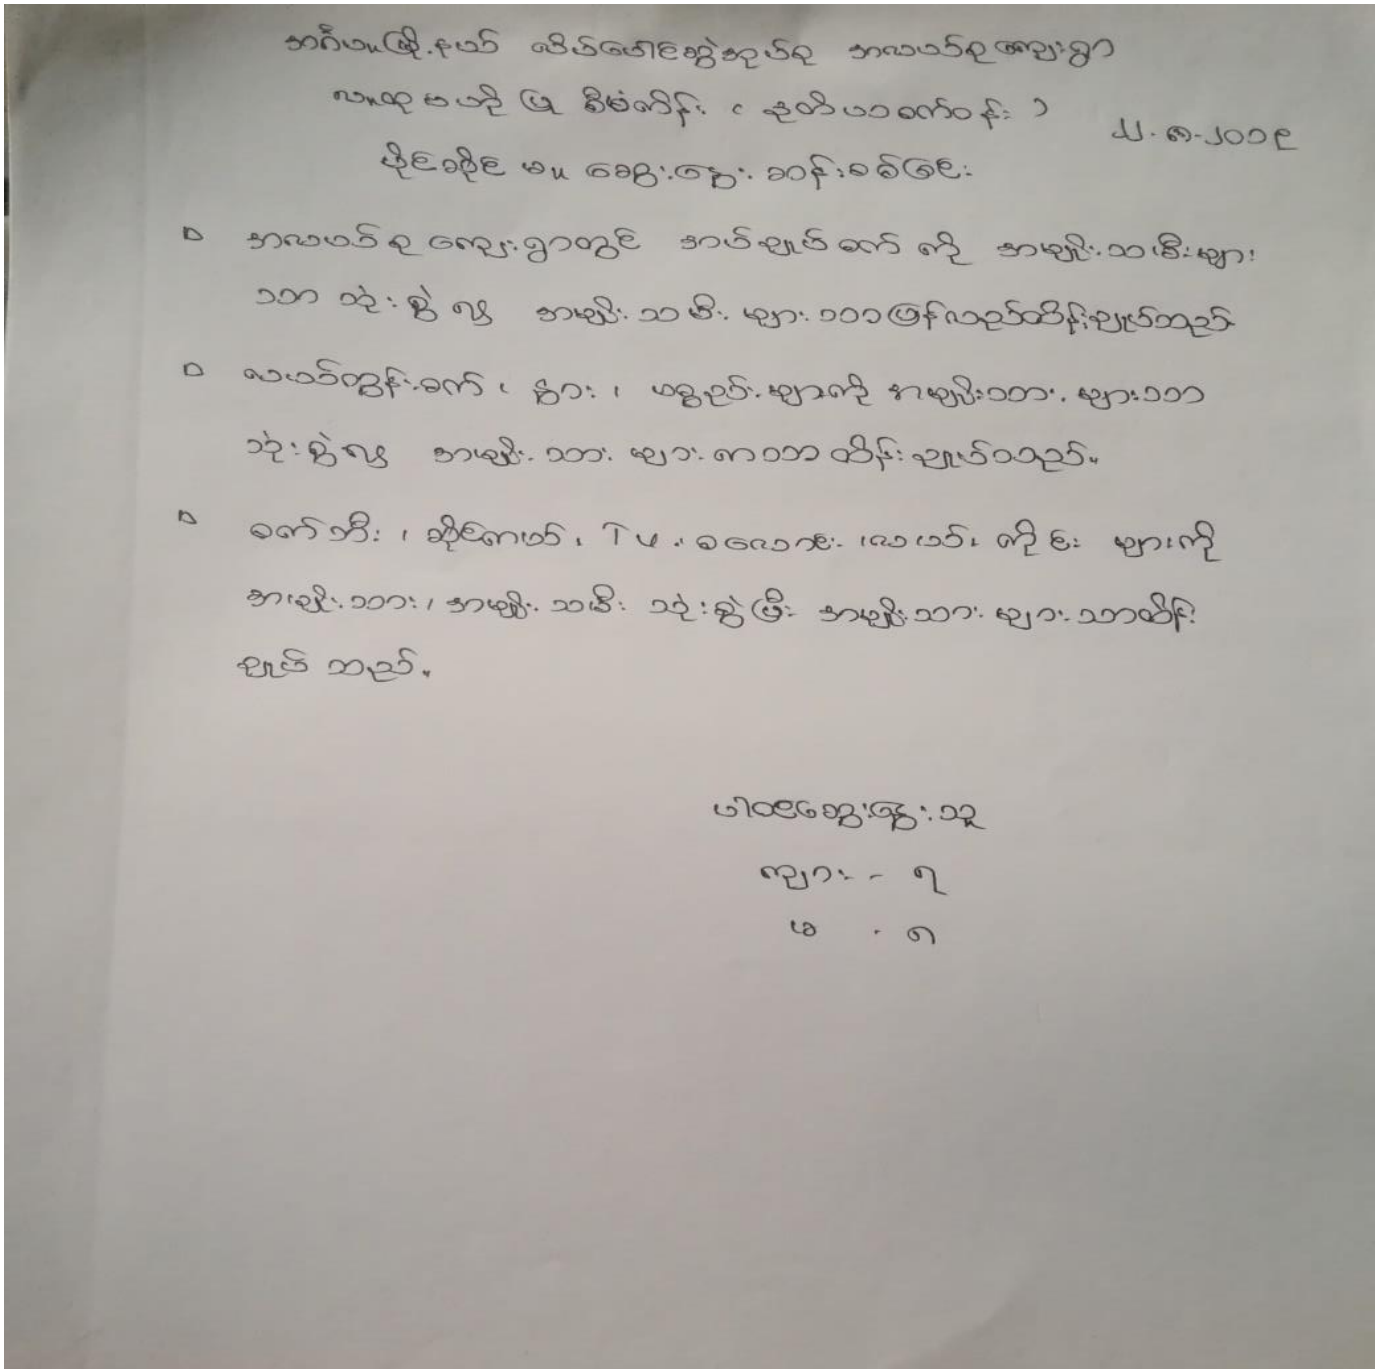 အင်္ဂပူမြို့နယ် လိပ်ပေါင်ဆွဲအုပ်စု အလယ်စုကျေးရွာ
လူထုဗဟိုပြု စီမံကိန်း ( ဒုတိယစက်ဝန်း )
၂၂-၈-၂၀၁၉
ပိုင်ဆိုင်မှု ဆွေးနွေးဆန်းစစ်ခြင်း
အလယ်စုကျေးရွာတွင် အပ်ချုပ်စက်ကို အမျိုးသမီးများ
သာ သုံးစွဲ၍ အမျိုးသမီးများသာပြန်လည်ထိန်းချုပ်သည်
လယ်ထွန်းစက်၊ နွား၊ ပစ္စည်းများကို အမျိုးသားများသာ
သုံးစွဲ၍ အမျိုးသားများကသာ ထိန်းချုပ်သည်။
စက်ဘီး၊ ဆိုင်ကယ်၊ TV၊ စလောင်း၊ လယ်၊ ကိုင်းများကို
အမျိုးသား၊ အမျိုးသမီး သုံးစွဲပြီး အမျိုးသားများသာထိန်း
ချုပ်သည်။
ပါဝင်ဆွေးနွေးသူ
ကျား - ၇
မ - ၈